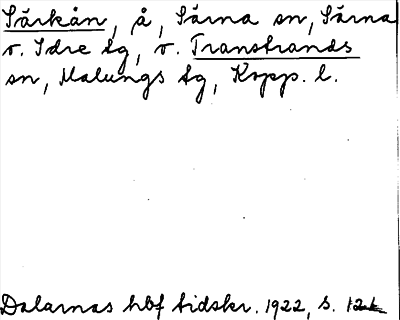 Särkån, å, Särna sn, Särna
o. Idre tg, o. Transtrands
sn, Malungs tg, Kopp. l.
Dalarnas hbf tidskr. 1922, s.